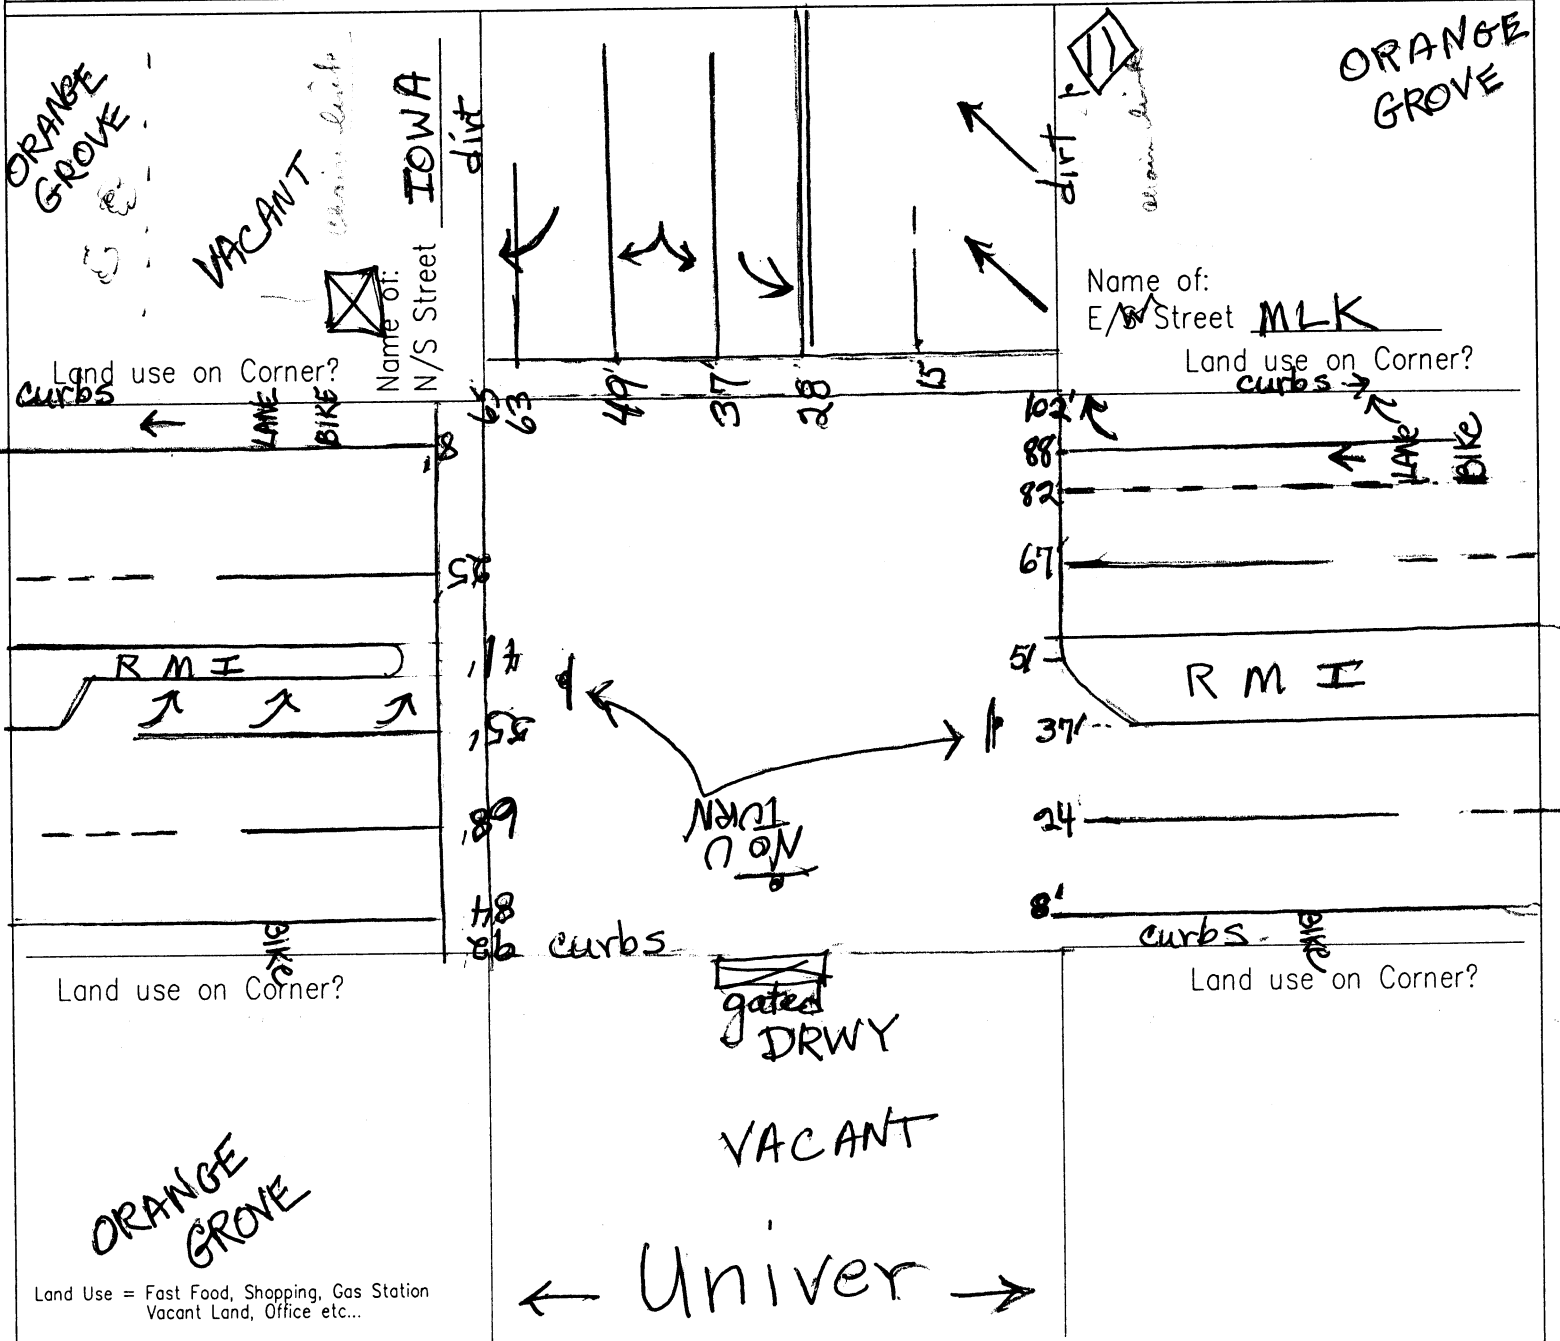 ORANGE
GROVE
VACANT
chain link
Name of:
N/S Street IOWA
dirt
dirt
chain link
ORANGE
GROVE
Name of:
E/W Street MLK
Land use on Corner?
Land use on Corner?
curbs
curbs
LANE
BIKE
65
63
49'
37'
28
15
102'
88
82
67'
51
37'
24'
8'
LANE
BIKE
8'
25
41'
55'
68'
84
92
RMI
RMI
NO U
TURN
BIKE
curbs
curbs
BIKE
Land use on Corner?
Land use on Corner?
gated
DRWY
VACANT
ORANGE
GROVE
Univer
Land Use = Fast Food, Shopping, Gas Station
Vacant Land, Office etc...